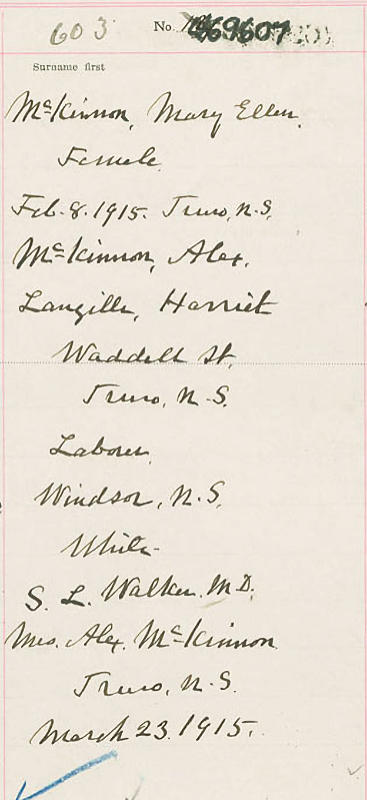 603 No. 469607
Surname first
McKinnon, Mary Ellen.
Female
Feb. 8. 1915. Truro, N.S.
McKinnon, Alex.
Langille, Harriet
Waddell St.
Truro, N.S.
Laborer.
Windsor, N.S.
White
S. L. Walker, M.D.
Mrs. Alex. McKinnon
Truro, N.S.
March 23. 1915.